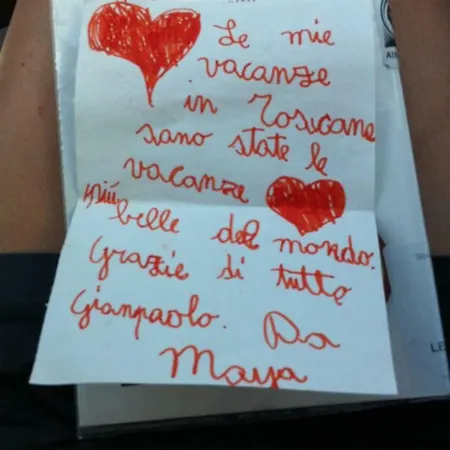 Le mie
vacanze
in Toscana
sano state le
vacanze
più belle del mondo.
Grazie di tutto
Gianpaolo. Da
Maya